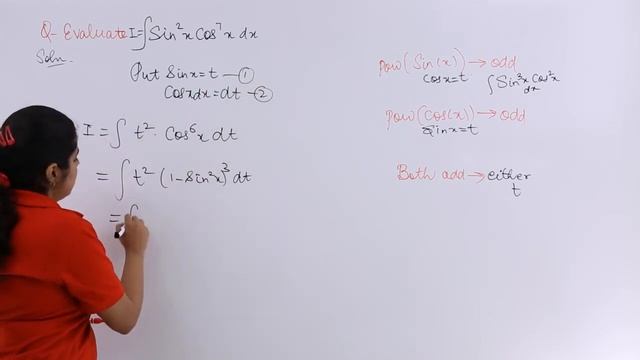 Q- Evaluate I=∫Sin²x Cos⁷x dx
Soln.
Put Sinx=t —①
Cosxdx=dt —②
I = ∫ t² · Cos⁶x dt
= ∫ t² (1-Sin²x)³ dt
= ∫
Pow(Sin(x)) → odd
Cosx=t
∫Sin³x Cos²x
dx
Pow(Cos(x)) → odd
Sinx=t
Both add → either
t